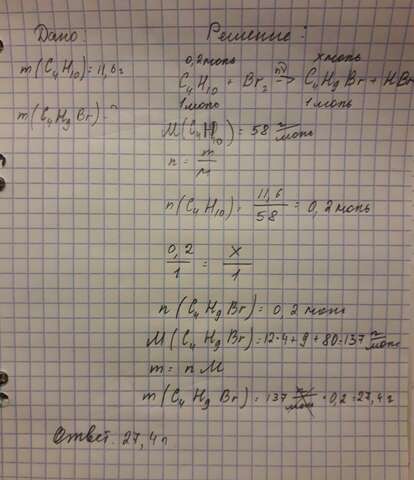 Дано:
Решение:
m(C₄H₁₀)=11,6г
m(C₄H₉Br)-?
0,2моль хмоль
C₄H₁₀ + Br₂ hν→ C₄H₉Br + HBr
1моль 1моль
M(C₄H₁₀) = 58 г/моль
n = m/M
n(C₄H₁₀) = 11,6/58 = 0,2моль
0,2/1 = x/1
n(C₄H₉Br) = 0,2моль
M(C₄H₉Br)=12·4+9+80=137 г/моль
m= nM
m(C₄H₉Br) = 137 г/моль ·0,2=27,4г
Ответ. 27,4г